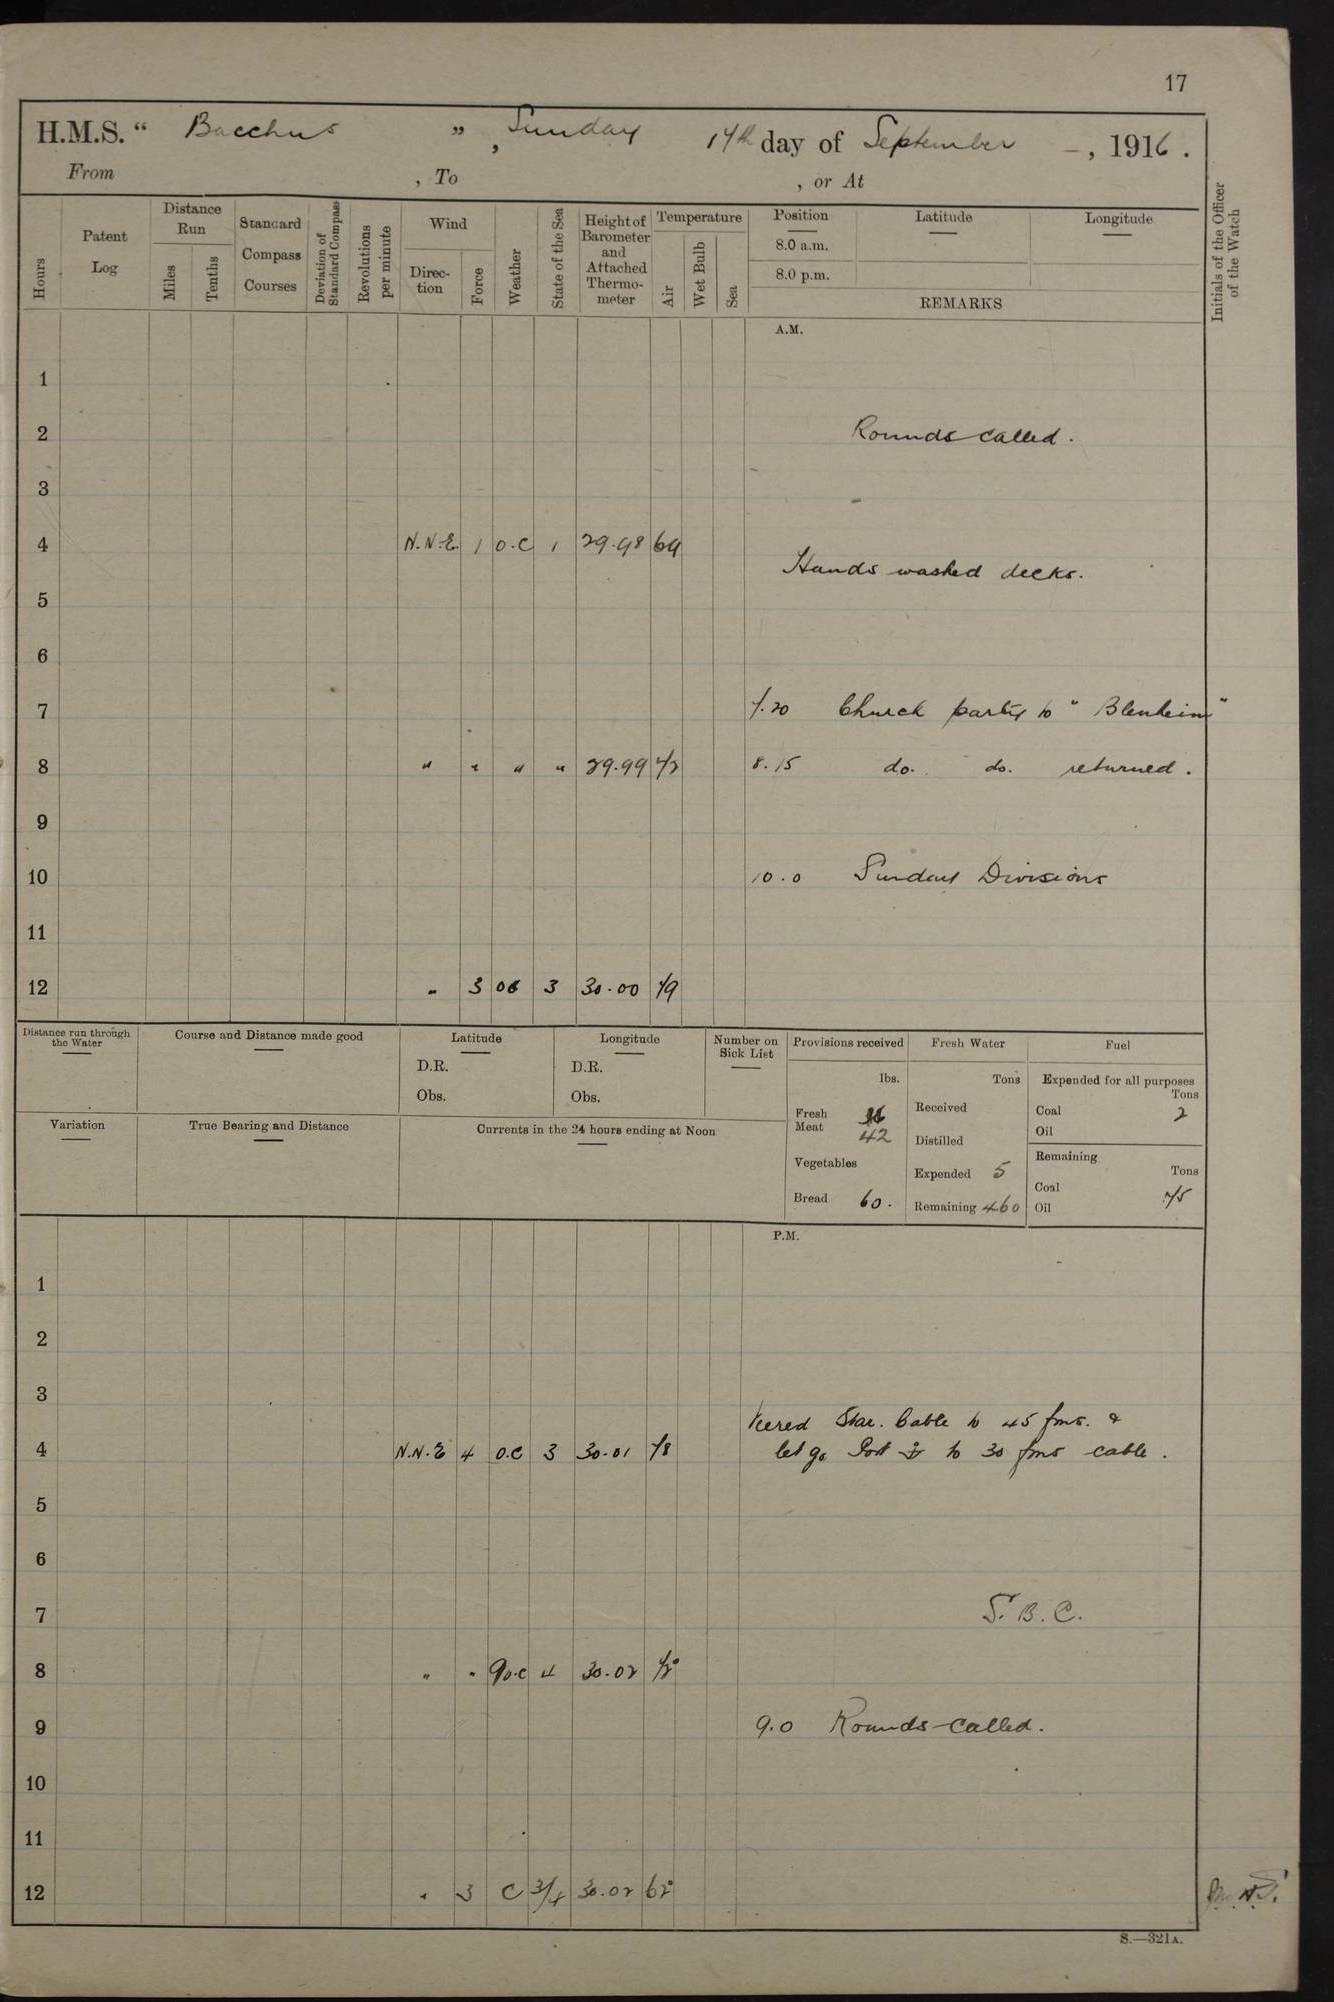 17
H.M.S. " Bacchus ", Sunday 17th day of September - , 1916.
From , To , or At
Hours
Patent Log
Distance Run
Miles
Tenths
Standard Compass Courses
Deviation of Standard Compass
Revolutions per minute
Wind
Direc-tion
Force
Weather
State of the Sea
Height of Barometer and Attached Thermo-meter
Temperature
Air
Wet Bulb
Sea
Position Latitude Longitude
8.0 a.m.
8.0 p.m.
REMARKS
Initials of the Officer of the Watch
A.M.
1
2 Rounds called.
3
4 N.N.E. 1 o.c 1 29.98 69
Hands washed decks.
5
6
7 7.20 Church party to "Blenheim"
8 " " " " 29.99 72 8.15 do. do. returned.
9
10 10.0 Sunday Divisions
11
12 " 3 3 30.00 79
Distance run through the Water
Course and Distance made good
Latitude
D.R.
Obs.
Longitude
D.R.
Obs.
Number on Sick List
Provisions received
lbs.
Fresh Meat 42
Vegetables
Bread 60.
Fresh Water
Tons
Received
Distilled
Expended 5
Remaining 460
Fuel
Expended for all purposes
Tons
Coal 2
Oil
Remaining
Tons
Coal 75
Oil
Variation
True Bearing and Distance
Currents in the 24 hours ending at Noon
P.M.
1
2
3
Veered Star. Cable to 45 fms. &
4 N.N.E 4 o.c 3 30.01 78 let go Port ⚓ to 30 fms cable.
5
6
7 S.B.C.
8 " " qo.c 4 30.02 72°
9 9.0 Rounds called.
10
11
12 " 3 C 3/4 30.02 62°
S.—321A.